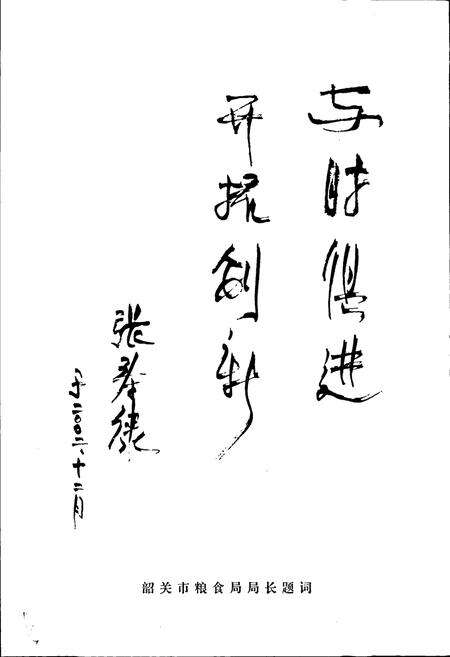 与时俱进
开拓创新
张
于二00二、十二月
韶关市粮食局局长题词